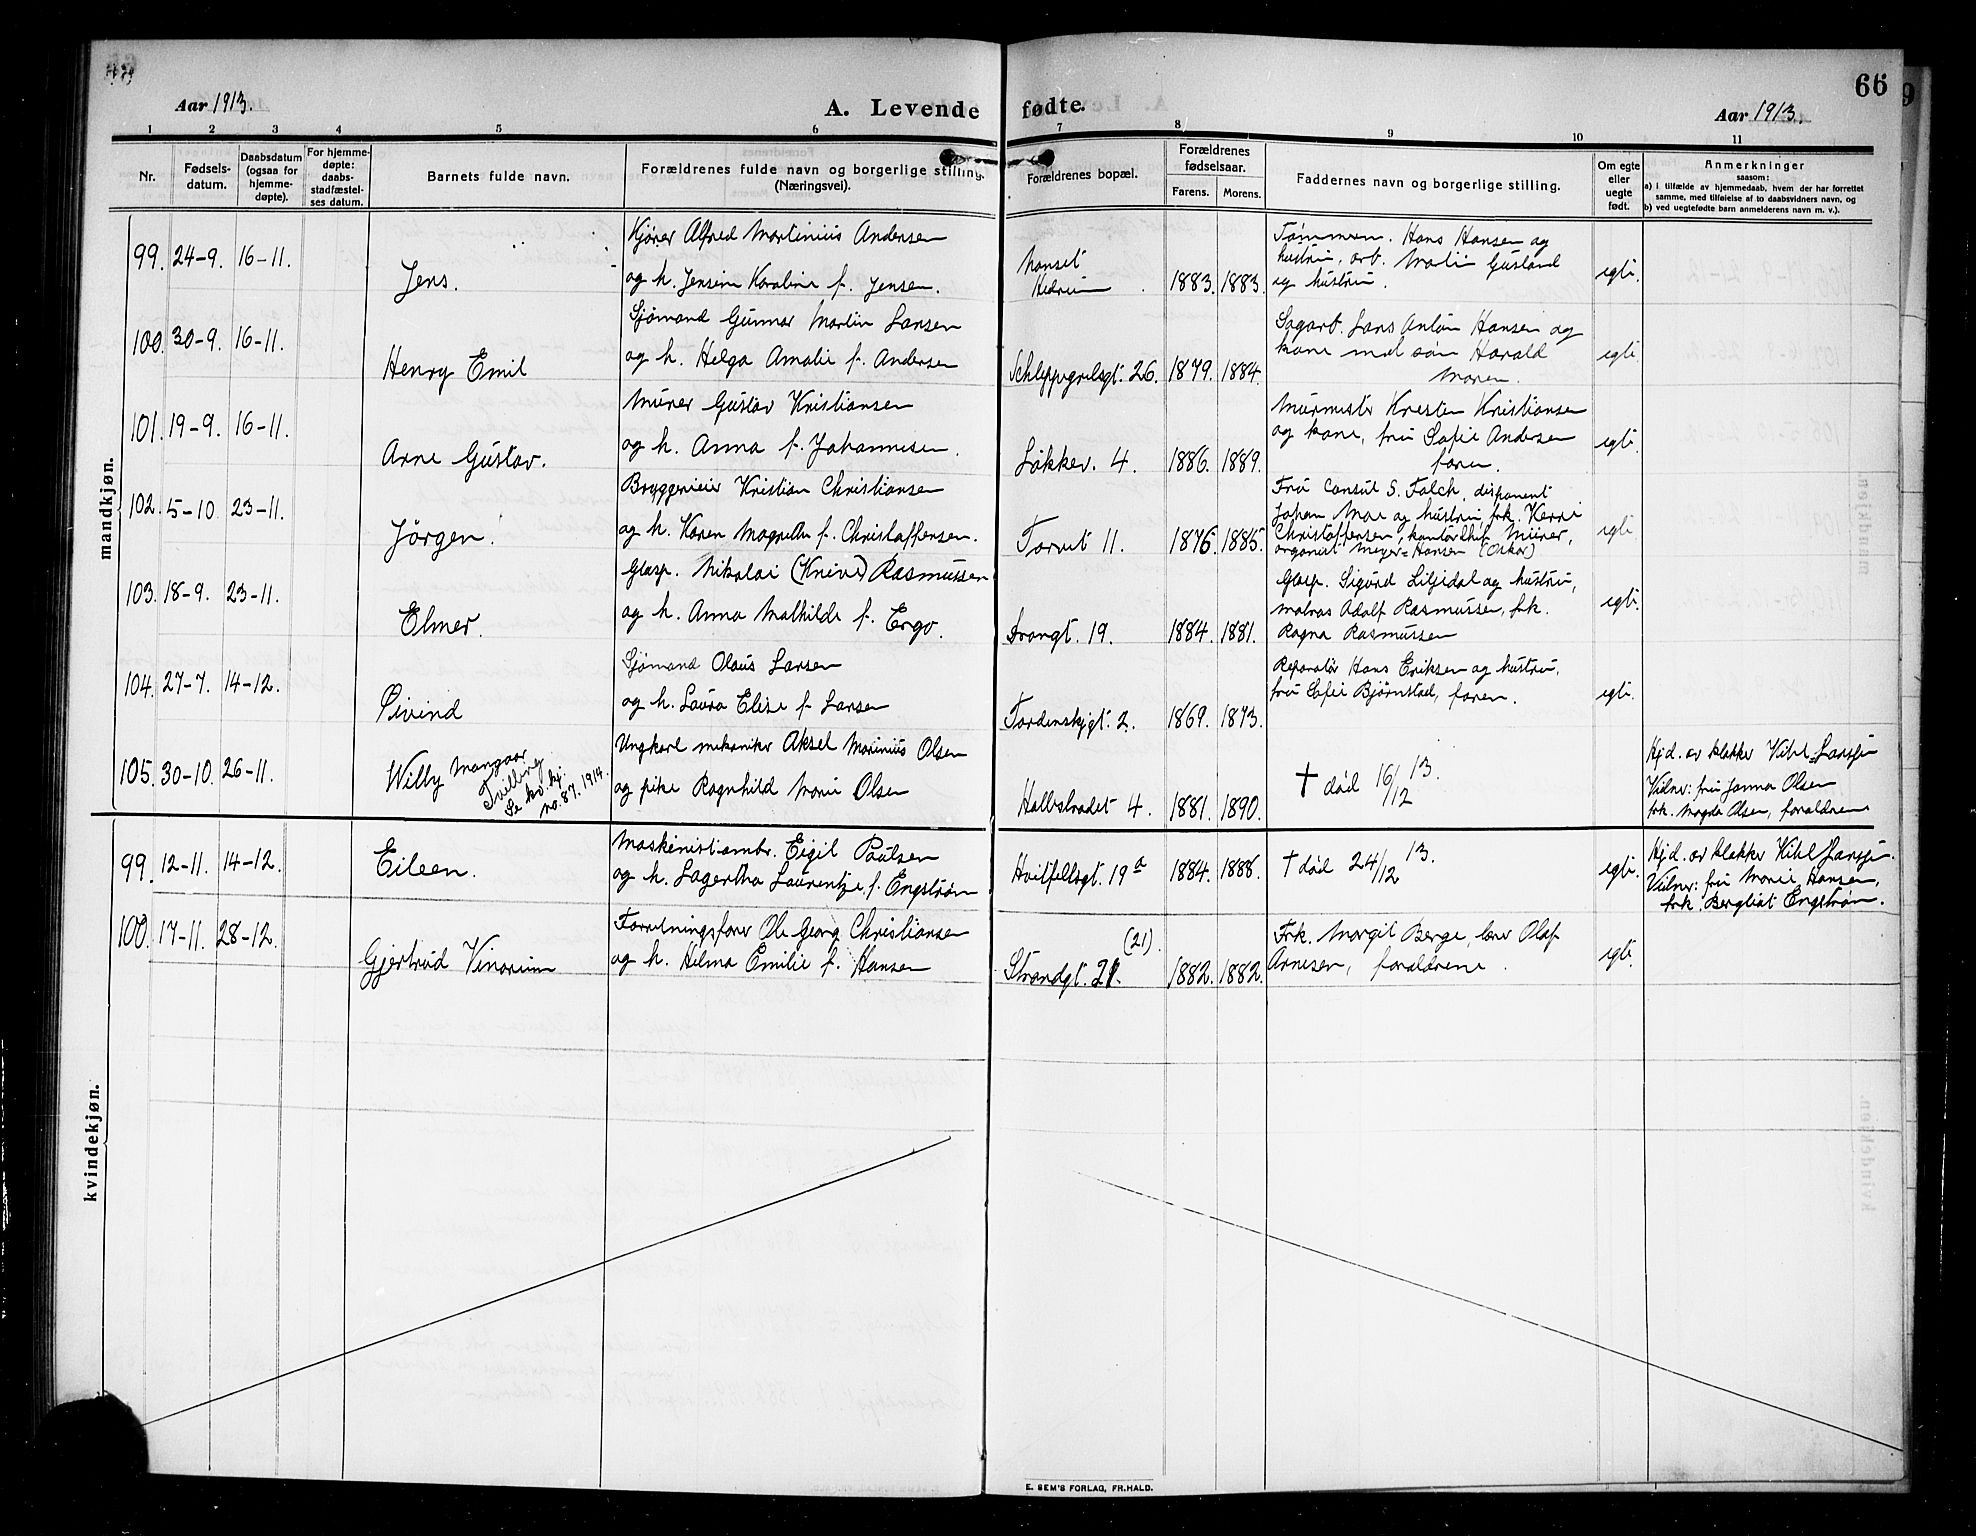 Aar 1913.
A. Levende
fødte.
Aar 1913.
66
1 2 3 4 5 6 7 8 9 10 11
Nr.
Fødsels-
datum.
Daabsdatum
(ogsaa for
hjemme-
døpte).
For hjemme-
døpte:
daabs-
stadfæstel-
ses datum.
Barnets fulde navn.
Forældrenes fulde navn og borgerlige stilling.
(Næringsvei).
Forældrenes bopæl.
Forældrenes
fødselsaar.
Farens. Morens.
Faddernes navn og borgerlige stilling.
Om egte
eller
uegte
født.
Anmerkninger
saasom:
a) i tilfælde av hjemmedaab, hvem der har forrettet
samme, med tilføielse af to daabsvidners navn, og
b) ved uegtefødte barn anmelderens navn m. v.).
mandkjøn.
99. 24-9. 16-11.
Jens.
Kjører Alfred Martinius Andersen
og h. Jensine Karoline f. Jensen.
Nanset
Hedrum
1883. 1883.
Tømmerm. Hans Hansen og
hustru, arb. Martin Gusland
og hustru.
egte.
100. 30-9. 16-11.
Henry Emil
Sjømand Gunnar Martin Larsen
og h. Helga Amalie f. Andersen
Schleppegrelsgt. 26. 1879. 1884.
Sagarb. Lars Anton Hansen og
kone med søn Harald
moren.
egte
101. 19-9. 16-11.
Arne Gustav.
Murer Gustav Kristiansen
og h. Anna f. Johannesen.
Løkkev. 4. 1886. 1889.
Murmester Kresten Kristiansen
og kone, fru Sofie Andersen
faren.
egte
102. 5-10 23-11.
Jørgen.
Bryggerieier Kristian Christiansen
og h. Karen Magrethe f. Christoffersen.
Torvet 11. 1876. 1885.
Fru Consul S. Falch, disponent
Johan Moe og hustru, frk. Kerri
Christoffersen, kontorchef Müner,
organist Meyer=Hansen (Oskar)
egte
103. 18-9. 23-11.
Elmer.
Glasp. Nikolai (Kneve) Rasmussen
og h. Anna Mathilde f. Ergo.
Drongt. 19. 1884. 1881.
Glasp. Sigurd Liljedal og hustru,
matros Adolf Rasmussen, frk.
Ragna Rasmussen
egte.
104. 27-7. 14-12.
Øivind
Sjømand Olaus Larsen
og h. Laura Elise f. Larsen
Tordenskjgt. 2. 1869. 1873.
Reparatør Hans Eriksen og hustru,
fru Sofie Bjørnstad, faren.
egte.
105. 30-10. 26-11.
Willy Mangaar
Tvilling
Se kv. kj.
no. 87. 1914.
Ungkarl mekaniker Aksel Marinius Olsen
og pike Ragnhild Marie Olsen
Halbstradet 4. 1881. 1890.
† død 16/12 13.
Hjd. av klokker Vibel Larssen
Vidner: fru Janna Olsen
frk. Magda Olsen, forældrene
kvindekjøn.
99. 12-11. 14-12.
Eileen.
Maskenistsambr. Eigil Paulsen
og h. Lagertha Laurentze f. Engstrøm
Hvitfeltsgt. 19a 1884. 1888.
† død 24/12 13.
egte.
Hjd. av klokker Vibel Larssen.
Vidner: fru Marie Hansen,
frk. Bergliot Engstrøm.
100. 17-11. 28-12.
Gjertrud Vinorium
Forretningsfører Ole Georg Christiansen
og h. Hilma Emilie f. Hansen
(21).
Strandgt. 21. 1882. 1882.
Frk. Margit Berge, lærer Olaf
Arnesen, forældrene.
egte.
E. SEM'S FORLAG, FR.HALD.